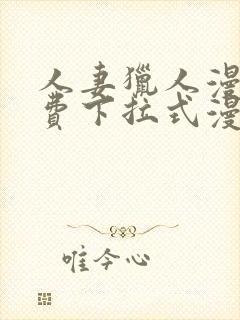 人妻獵人漫
費下拉式漫
唯今心